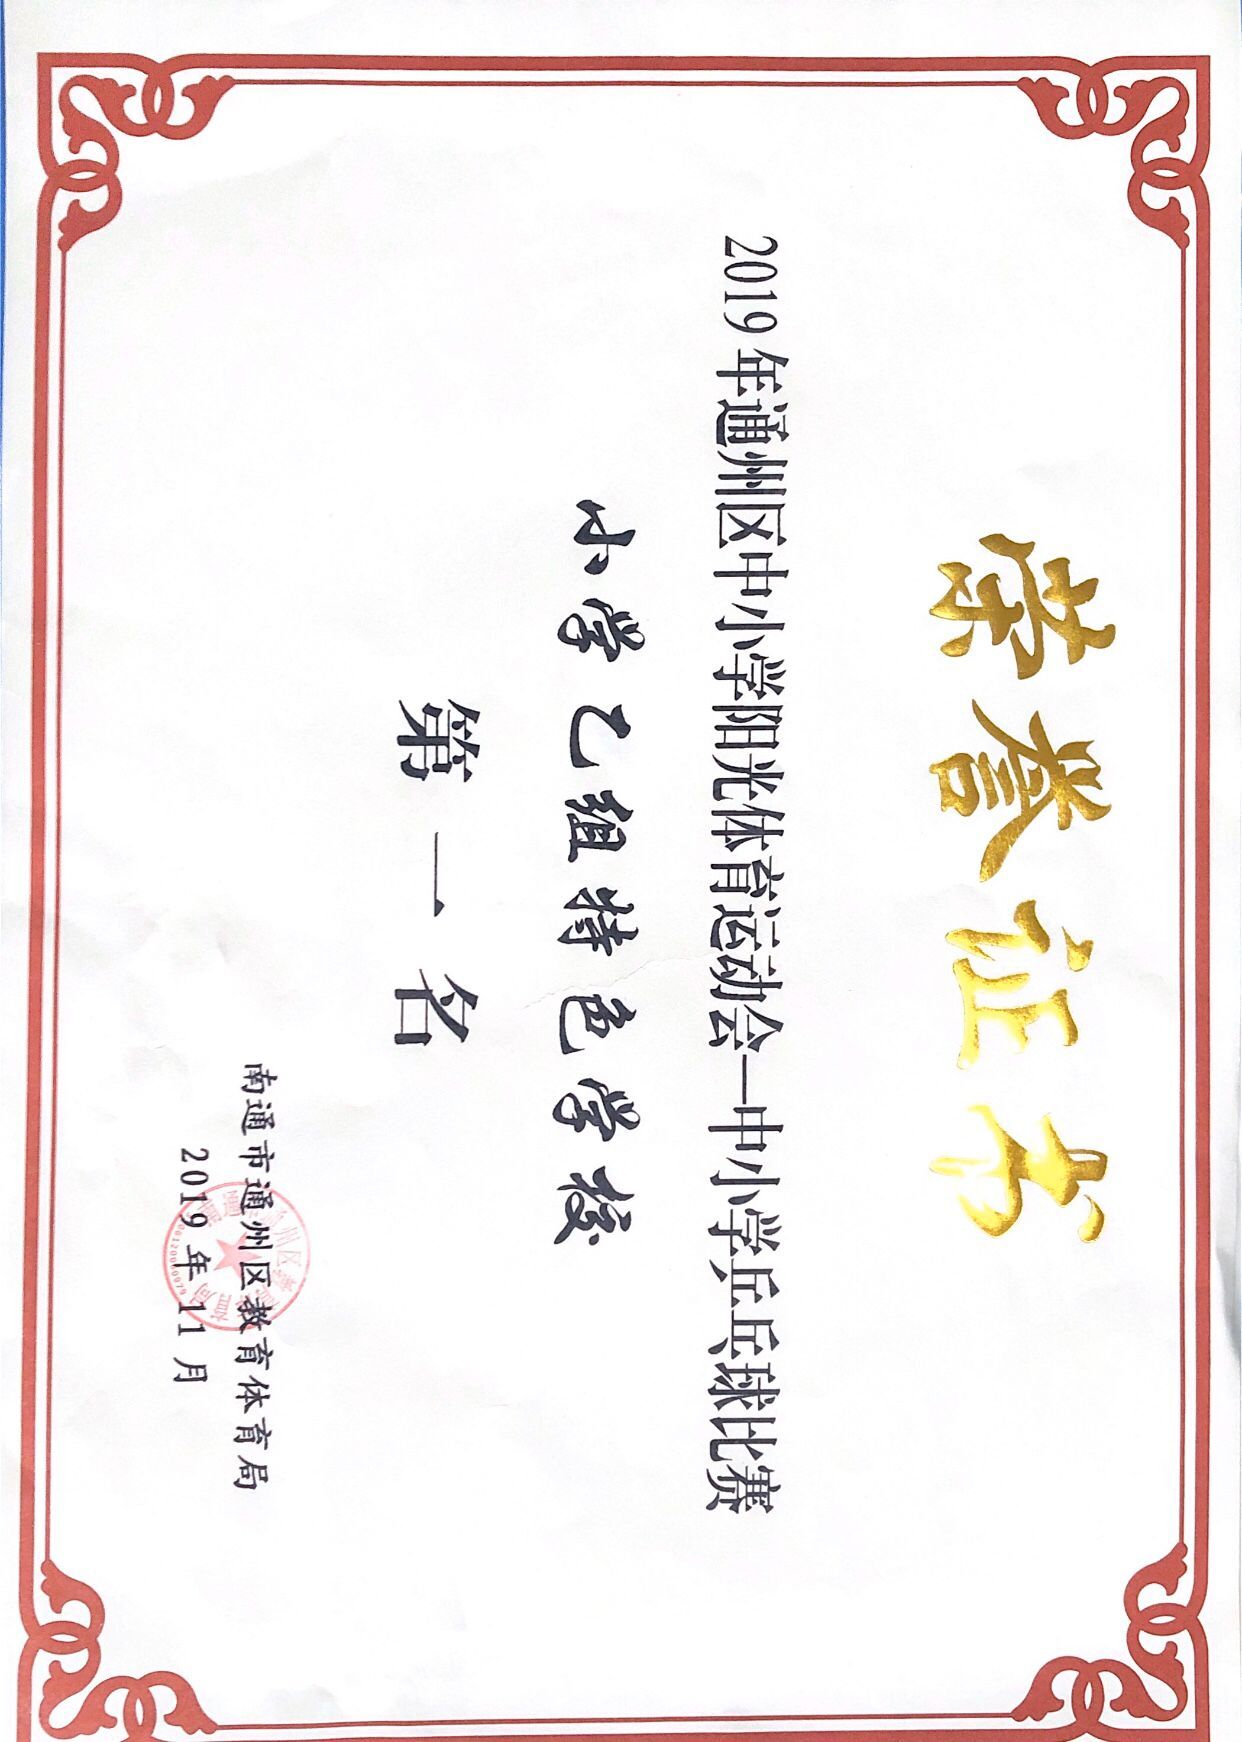 荣誉证书
2019年通州区中小学阳光体育运动会—中小学乒乓球比赛
小学乙组特色学校
第一名
南通市通州区教育体育局
2019年11月